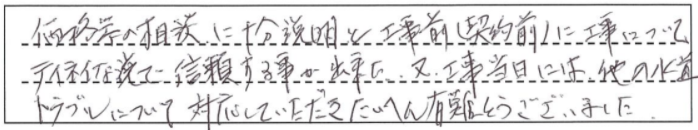 価格等の相談に十分説明と工事前(契約前)に工事について
テイネイな説で信頼する事が出来た、又、工事当日には、他の水道
トラブルについて対応していただきたいへん有難とうございました